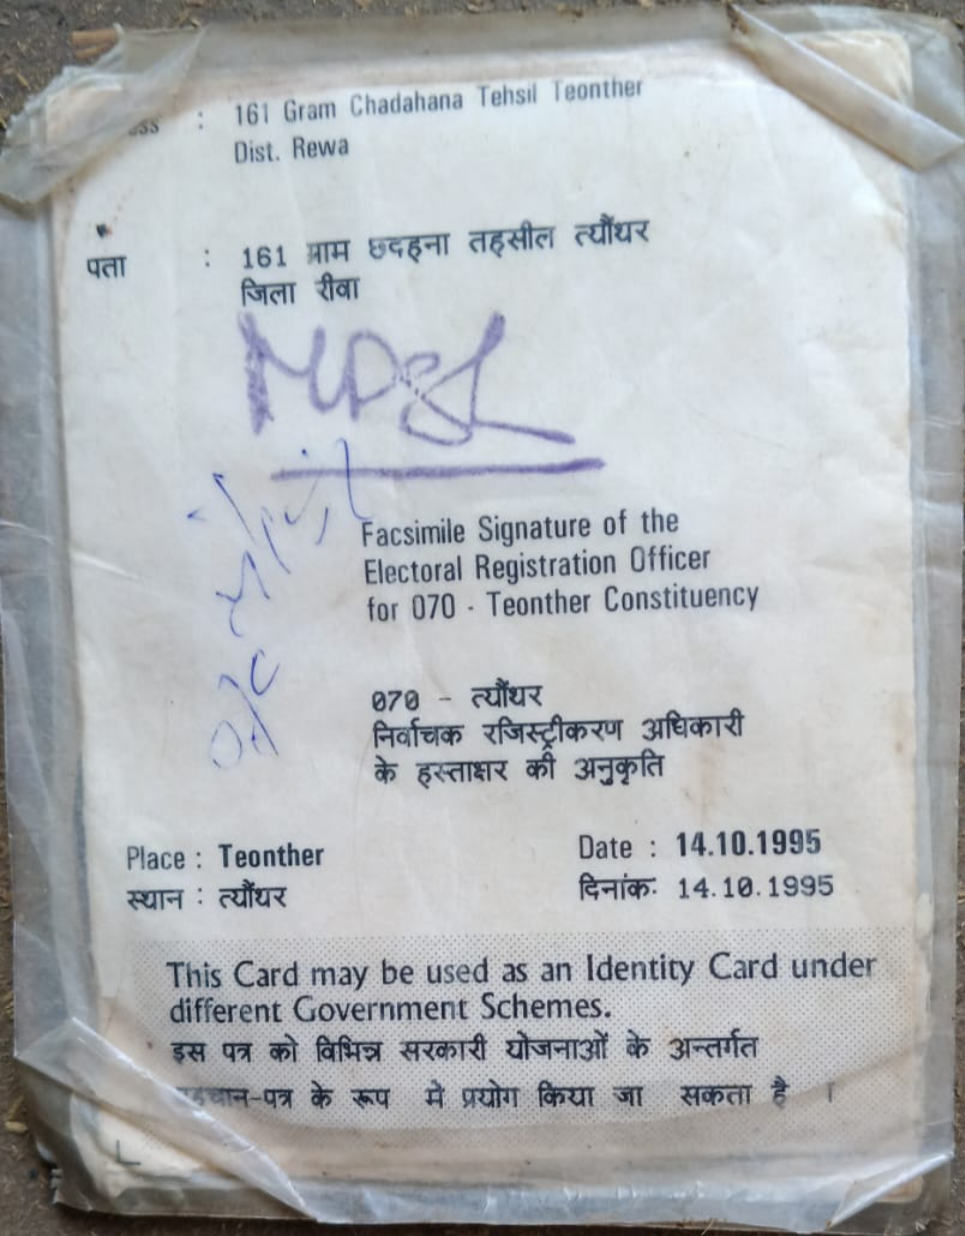 : 161 Gram Chadahana Tehsil Teonther
Dist. Rewa
पता : 161 ग्राम छदहना तहसील त्यौंथर
जिला रीवा
Facsimile Signature of the
Electoral Registration Officer
for 070 - Teonther Constituency
070 - त्यौंथर
निर्वाचक रजिस्ट्रीकरण अधिकारी
के हस्ताक्षर की अनुकृति
Place : Teonther Date : 14.10.1995
स्थान : त्यौंथर दिनांक: 14.10.1995
This Card may be used as an Identity Card under
different Government Schemes.
इस पत्र को विभिन्न सरकारी योजनाओं के अन्तर्गत
पहचान-पत्र के रूप मे प्रयोग किया जा सकता है ।